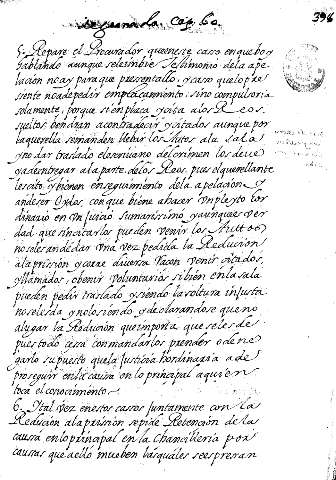 segunda Cap. 6o
396
5. Repare el Procurador que en ese caso en que boy
hablando aunque se le embie testimonio de la ape
lacion no ay para que presentallo, y caso que lo pre
sente no a de pedir emplaçamiento, sino compulsoria
solamente, porque si emplaça y cita a los Reos,
sueltos bendran a contradecir y citados aunque por
la querella se manden llebar los Autos a la sala
y no dar traslado el escrivano del crimen los deve
y a de entregar a la parte de los Reos, pues el querellante
les citó, y bienen en seguimiento de la apelacion y
an de ser oydos, con que biene a hacer un pleyto or
dinario en un Juicio sumarissimo, y aunque es ver
dad que sin citarlos pueden venir los Autos,
no se les an de dar una vez pedida la Reduccion
a la prission y corre diversa racon venir citados,
y llamados, o benir voluntarios si bien en la sala
pueden pedir traslado y siendo la soltura injusta
no se les da, y no lo siendo, y declarandose que no
a lugar la Reducion que importa que se les de
pues todo cesa con mandarlos prender o dene
garlo supuesto que la Justicia hordinaria a de
proseguir en la causa en lo principal a quien
toca el conocimiento.
6. Ital vez en estos casos juntamente con la
Reducion a la prission se pide Retencion de la
causa en lo principal en la Chancilleria por
causas que a ello mueben las quales se espresan